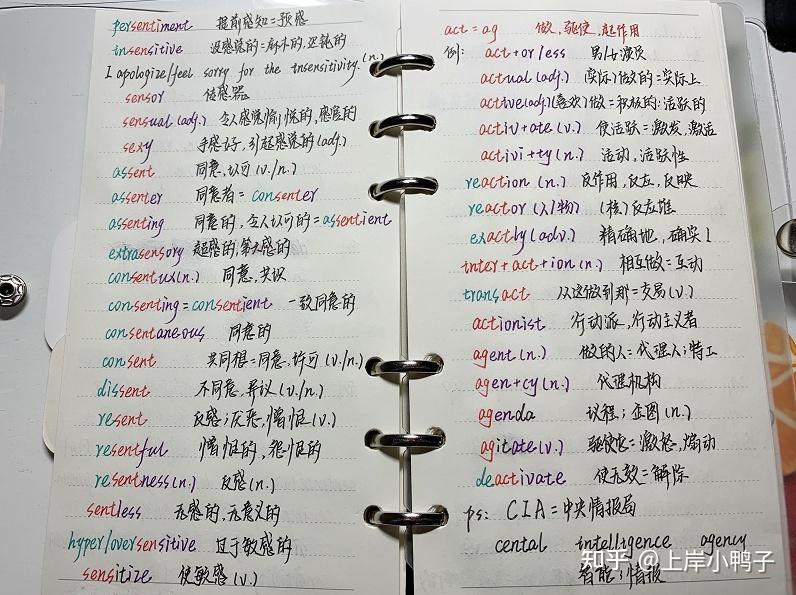 persentiment 提前感知=预感
insensitive 没感觉的=麻木的,迟钝的
I apologize/feel sorry for the insensitivity.(n.)
sensor 传感器
sensual (adj.) 令人感觉愉悦的,感官的
sexy 手感好,引起感觉的(adj.)
assent 同意,认可(v./n.)
assenter 同意者=consenter
assenting 同意的,令人认可的=assentient
extrasensory 超感的,第六感的
consentux(n.) 同意,共识
consenting=consentient 一致同意的
consentaneous 同意的
consent 共同相=同意,许可(v./n.)
dissent 不同意,异议(v./n.)
resent 反感;厌恶,憎恨(v.)
resentful 憎恨的,怨恨的
resentness(n.) 反感(n.)
sentless 无感的,无意义的
hyper/oversensitive 过于敏感的
sensitize 使敏感(v.)
act=ag 做,驱使,起作用
例: act+or less 男/女演员
actual (adj.) (实际)做的=实际上
active(adj.)(喜欢)做=积极的;活跃的
activ+ate(v.) 使活跃=激发,激活
activi+ty(n.) 活动,活跃性
reaction (n.) 反作用,反应,反映
reactor (人/物) (核)反应堆
exactly(adv.) 精确地,确实!
inter+act+ion(n.) 相互做=互动
transact 从这做到那=交易(v.)
actionist 行动派,行动主义者
agent(n.) 做的人=代理人;特工
agen+cy(n.) 代理机构
agenda 议程;企图(n.)
agitate(v.) 驱使=激怒,煽动
deactivate 使无效=解除
ps: CIA=中央情报局
cental intelligence agency
智能;情报
知乎 @上岸小鸭子